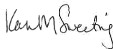 Karen M Sweeting